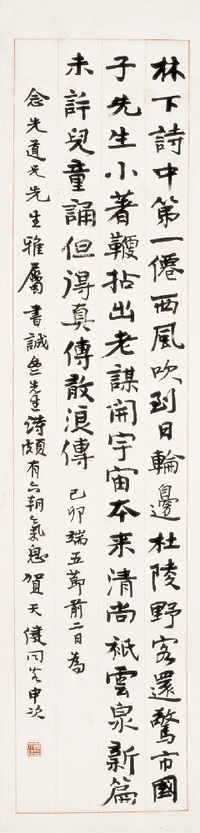 林下詩中第一僊西風吹到日輪邊杜陵野客還驚市國
子先生小著鞭拈出老謀開宇宙本来清尚祇雲泉新篇
未許兒童誦但得真傳敢浪傳 己卯端五節前二日為
念先道兄先生雅屬書誠齋先生詩頗有六朝氣息賀天健同客申次